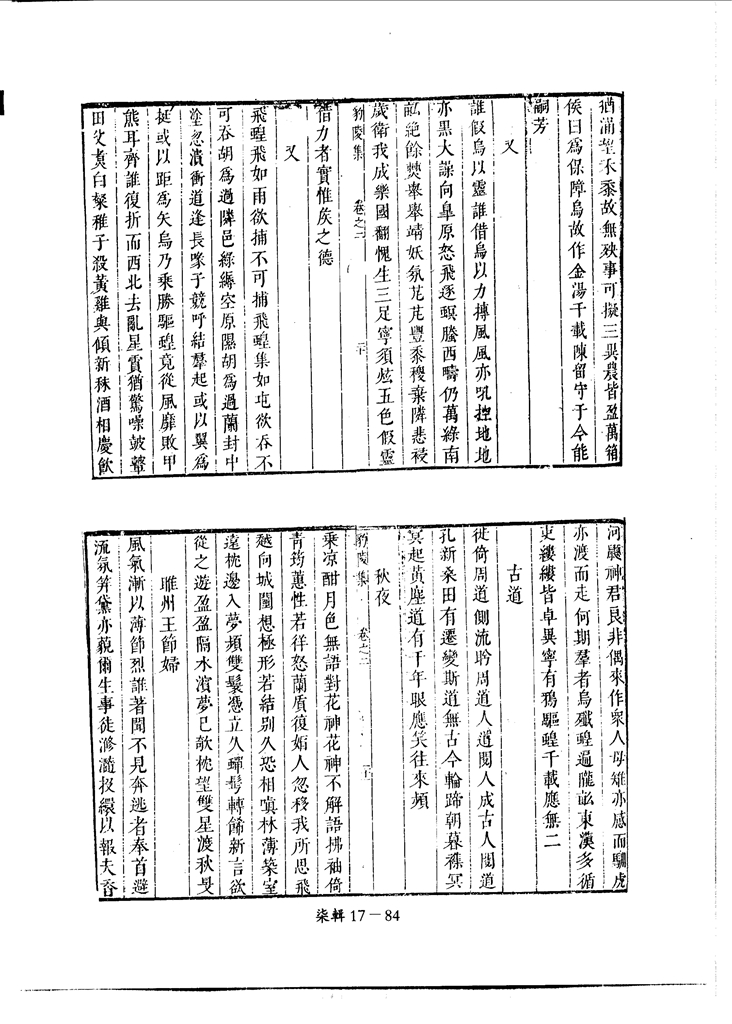 猶滿望禾黍故無殃事可擬三異農皆盈萬箱
侯曰為保障烏故作金湯千載陳留守于今能
嗣芳
又
誰假烏以靈誰借烏以力摶風風亦吼控地地
亦黑大譟向皐原怒飛逐螟螣西疇仍萬綠南
畝絶餘奰舉舉靖妖氛芃芃豐黍稷棄隣悲祲
歲衛我成樂國翻愧生三足寧須炫五色假靈
豹陵集 卷之二 二十
借力者實惟矦之德
又
飛蝗飛如雨欲捕不可捕飛蝗集如屯欲吞不
可吞胡為過隣邑綠縟空原隰胡為過蘭封中
塗忽潰衝道逢長喙子競呼結羣起或以翼為
挺或以距為矢烏乃乘勝驅蝗竟從風靡敗甲
熊耳齊誰復折而西北去亂星霣猶驚噪皷鼙
田父煑白粲稚子殺黃雞輿傾新秫酒相慶飲
河麋神君良非偶來作衆人母雉亦感而馴虎
亦渡而走何期羣者烏殲蝗遍隴畝東漢多循
吏縷縷皆卓異寧有鴉驅蝗千載應無二
古道
徙倚周道側流盼周道人道閱人成古人閱道
孔新桑田有遷變斯道無古今輪蹄朝暮襍冥
冥起黃塵道有千年眼應笑往來頻
秋夜
豹陵集 卷之二
乘凉酣月色無語對花神花神不解語拂袖倚
青筠蕙性若徉怒蘭質復媚人忽移我所思飛
越向城闉想極形若結別久恐相嗔林薄築室
遠枕邊入夢頻雙鬟憑立久軃髩轉餙新言欲
從之遊盈盈隔水濱夢已欹枕望雙星渡秋旻
睢州王節婦
風氣漸以薄節烈誰著聞不見奔逃者奉首避
流氛笄黛亦藐爾生事徒滫瀡投繯以報夫吞
柒輯 17－84